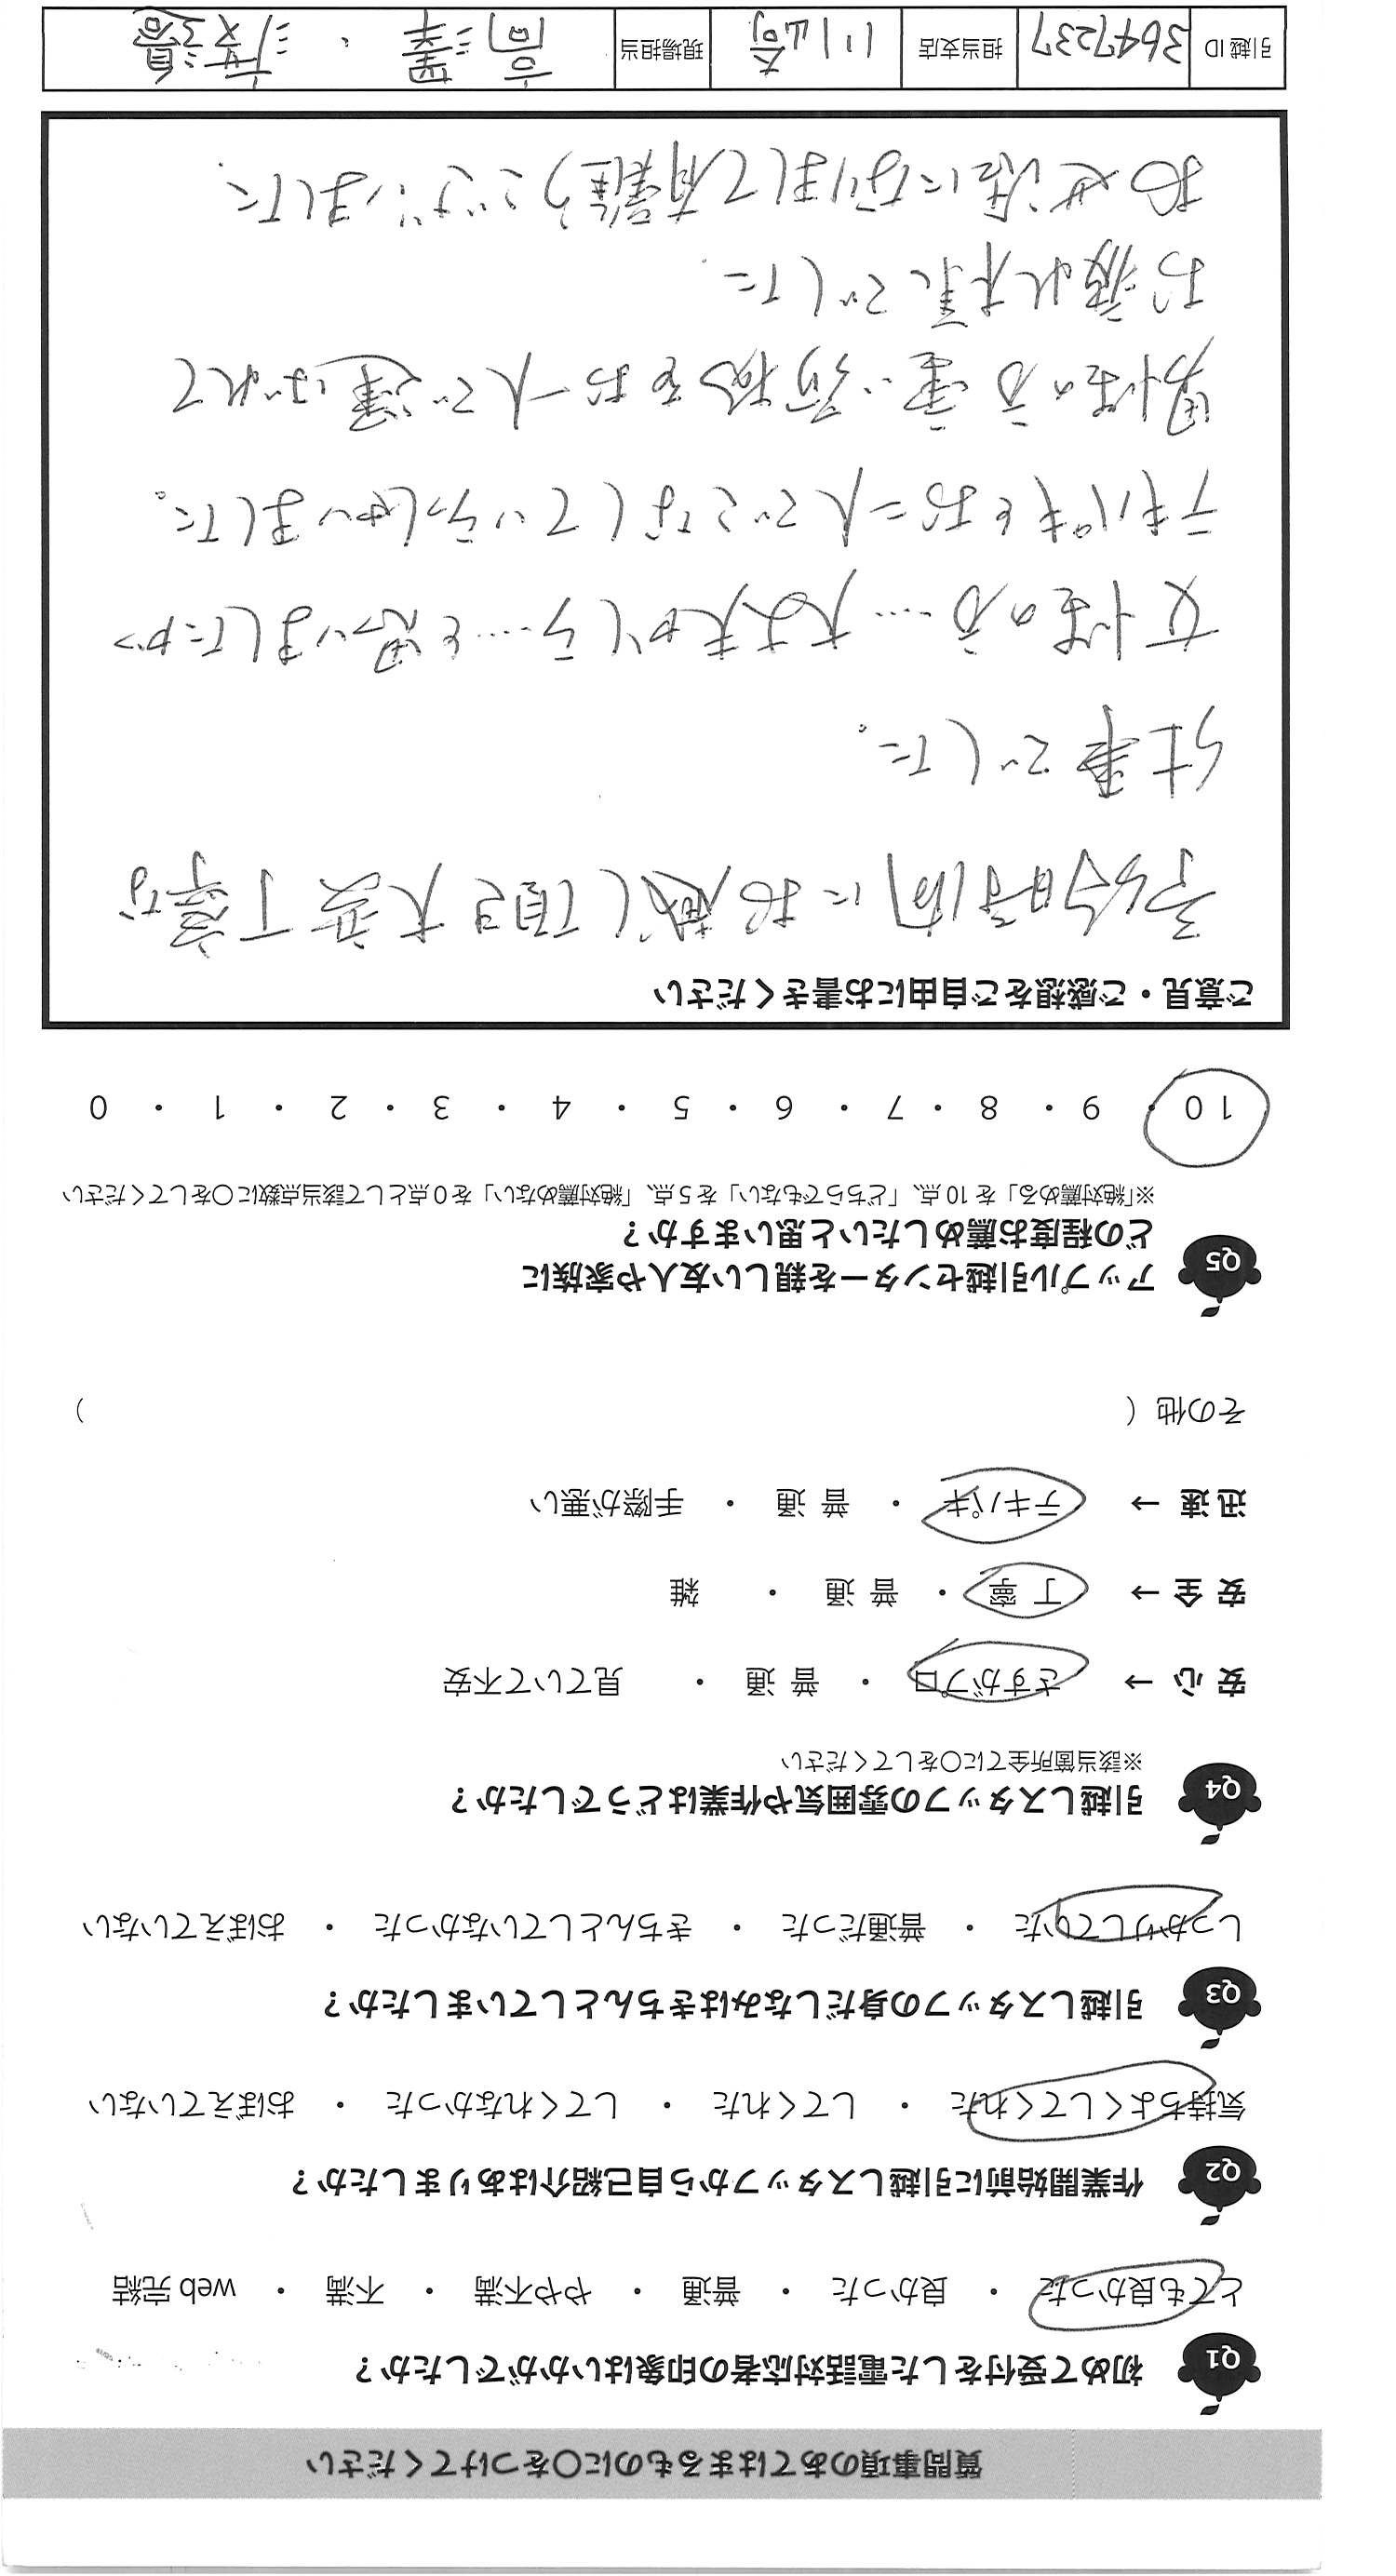 質問事項のあてはまるものに〇をつけてください
Q1 初めて受付をした電話対応者の印象はいかがでしたか？
とても良かった ・ 良かった ・ 普通 ・ やや不満 ・ 不満 ・ web 完結
Q2 作業開始前に引越しスタッフから自己紹介はありましたか？
気持ちよくしてくれた ・ してくれた ・ してくれなかった ・ おぼえていない
Q3 引越しスタッフの身だしなみはきちんとしていましたか？
しっかりしていた ・ 普通だった ・ きちんとしていなかった ・ おぼえていない
Q4 引越しスタッフの雰囲気や作業はどうでしたか？
※該当箇所全てに〇をしてください
安 心 → さすがプロ ・ 普 通 ・ 見ていて不安
安 全 → 丁 寧 ・ 普 通 ・ 雑
迅 速 → テキパキ ・ 普 通 ・ 手際が悪い
その他（ ）
Q5 アップル引越センターを親しい友人や家族に
どの程度お薦めしたいと思いますか？
※「絶対薦める」を 10 点、「どちらでもない」を 5 点、「絶対薦めない」を 0 点として該当点数に〇をしてください
1 0 ・ 9 ・ 8 ・ 7 ・ 6 ・ 5 ・ 4 ・ 3 ・ 2 ・ 1 ・ 0
ご意見・ご感想をご自由にお書きください
時間にお越し頂き大変丁寧な
仕事でした。
女性の方…大丈夫かしら…と思いましたが
テキパキとお二人でこなしていらっしゃいました。
男性の方重い荷物をお一人で運ばれて
お疲れ様でした。
お世話になりまして有難うございました。
引越 ID 3647237 担当支店 川崎 現場担当 高澤 ・